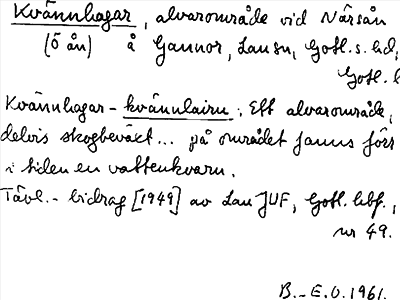 Kvännhagar, alvarområde vid Närsån
(ö ån) å Gannor, Lausn, Gotl. s. hd,
Gotl. l
Kvännhagar - kvännlairu: Ett alvarområde,
delvis skogbeväxt... på området fanns förr
i tiden en vattenkvarn.
Tävl.-bidrag [1949] av Lau JUF, Gotl. hbf.,
nr 49.
B.-E.O. 1961.